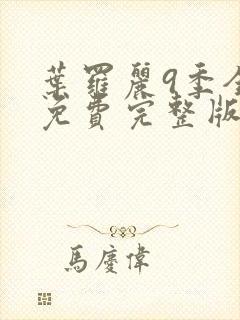 葉羅麗9季全
免費完整版
馬慶偉